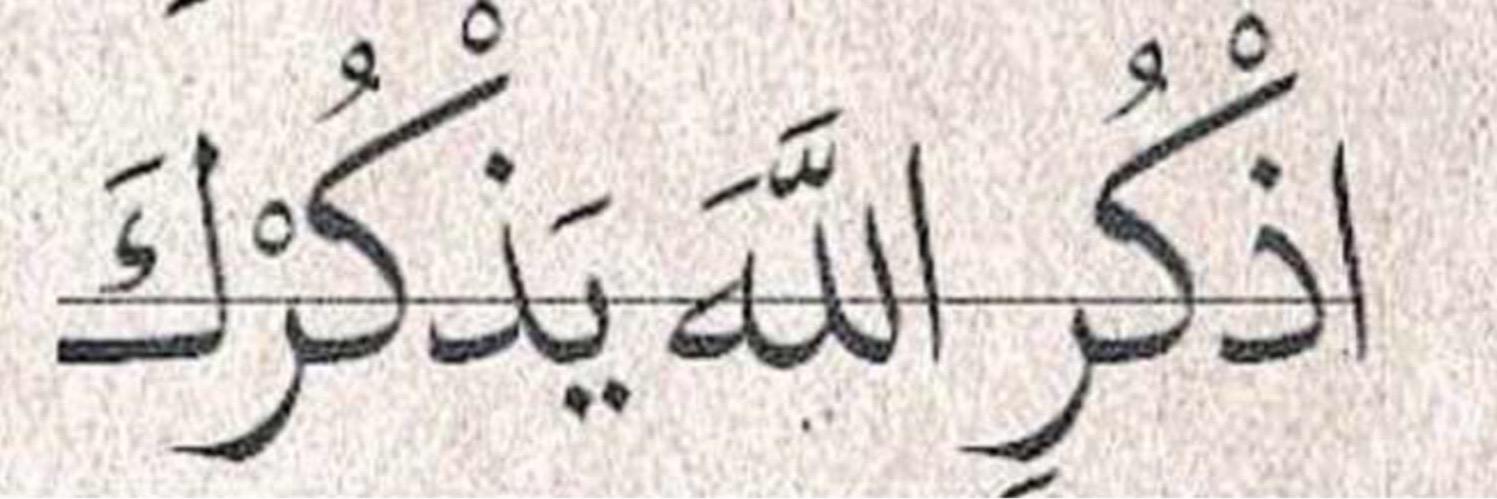 اذْكُرِ اللَّهَ يَذْكُرْكَ